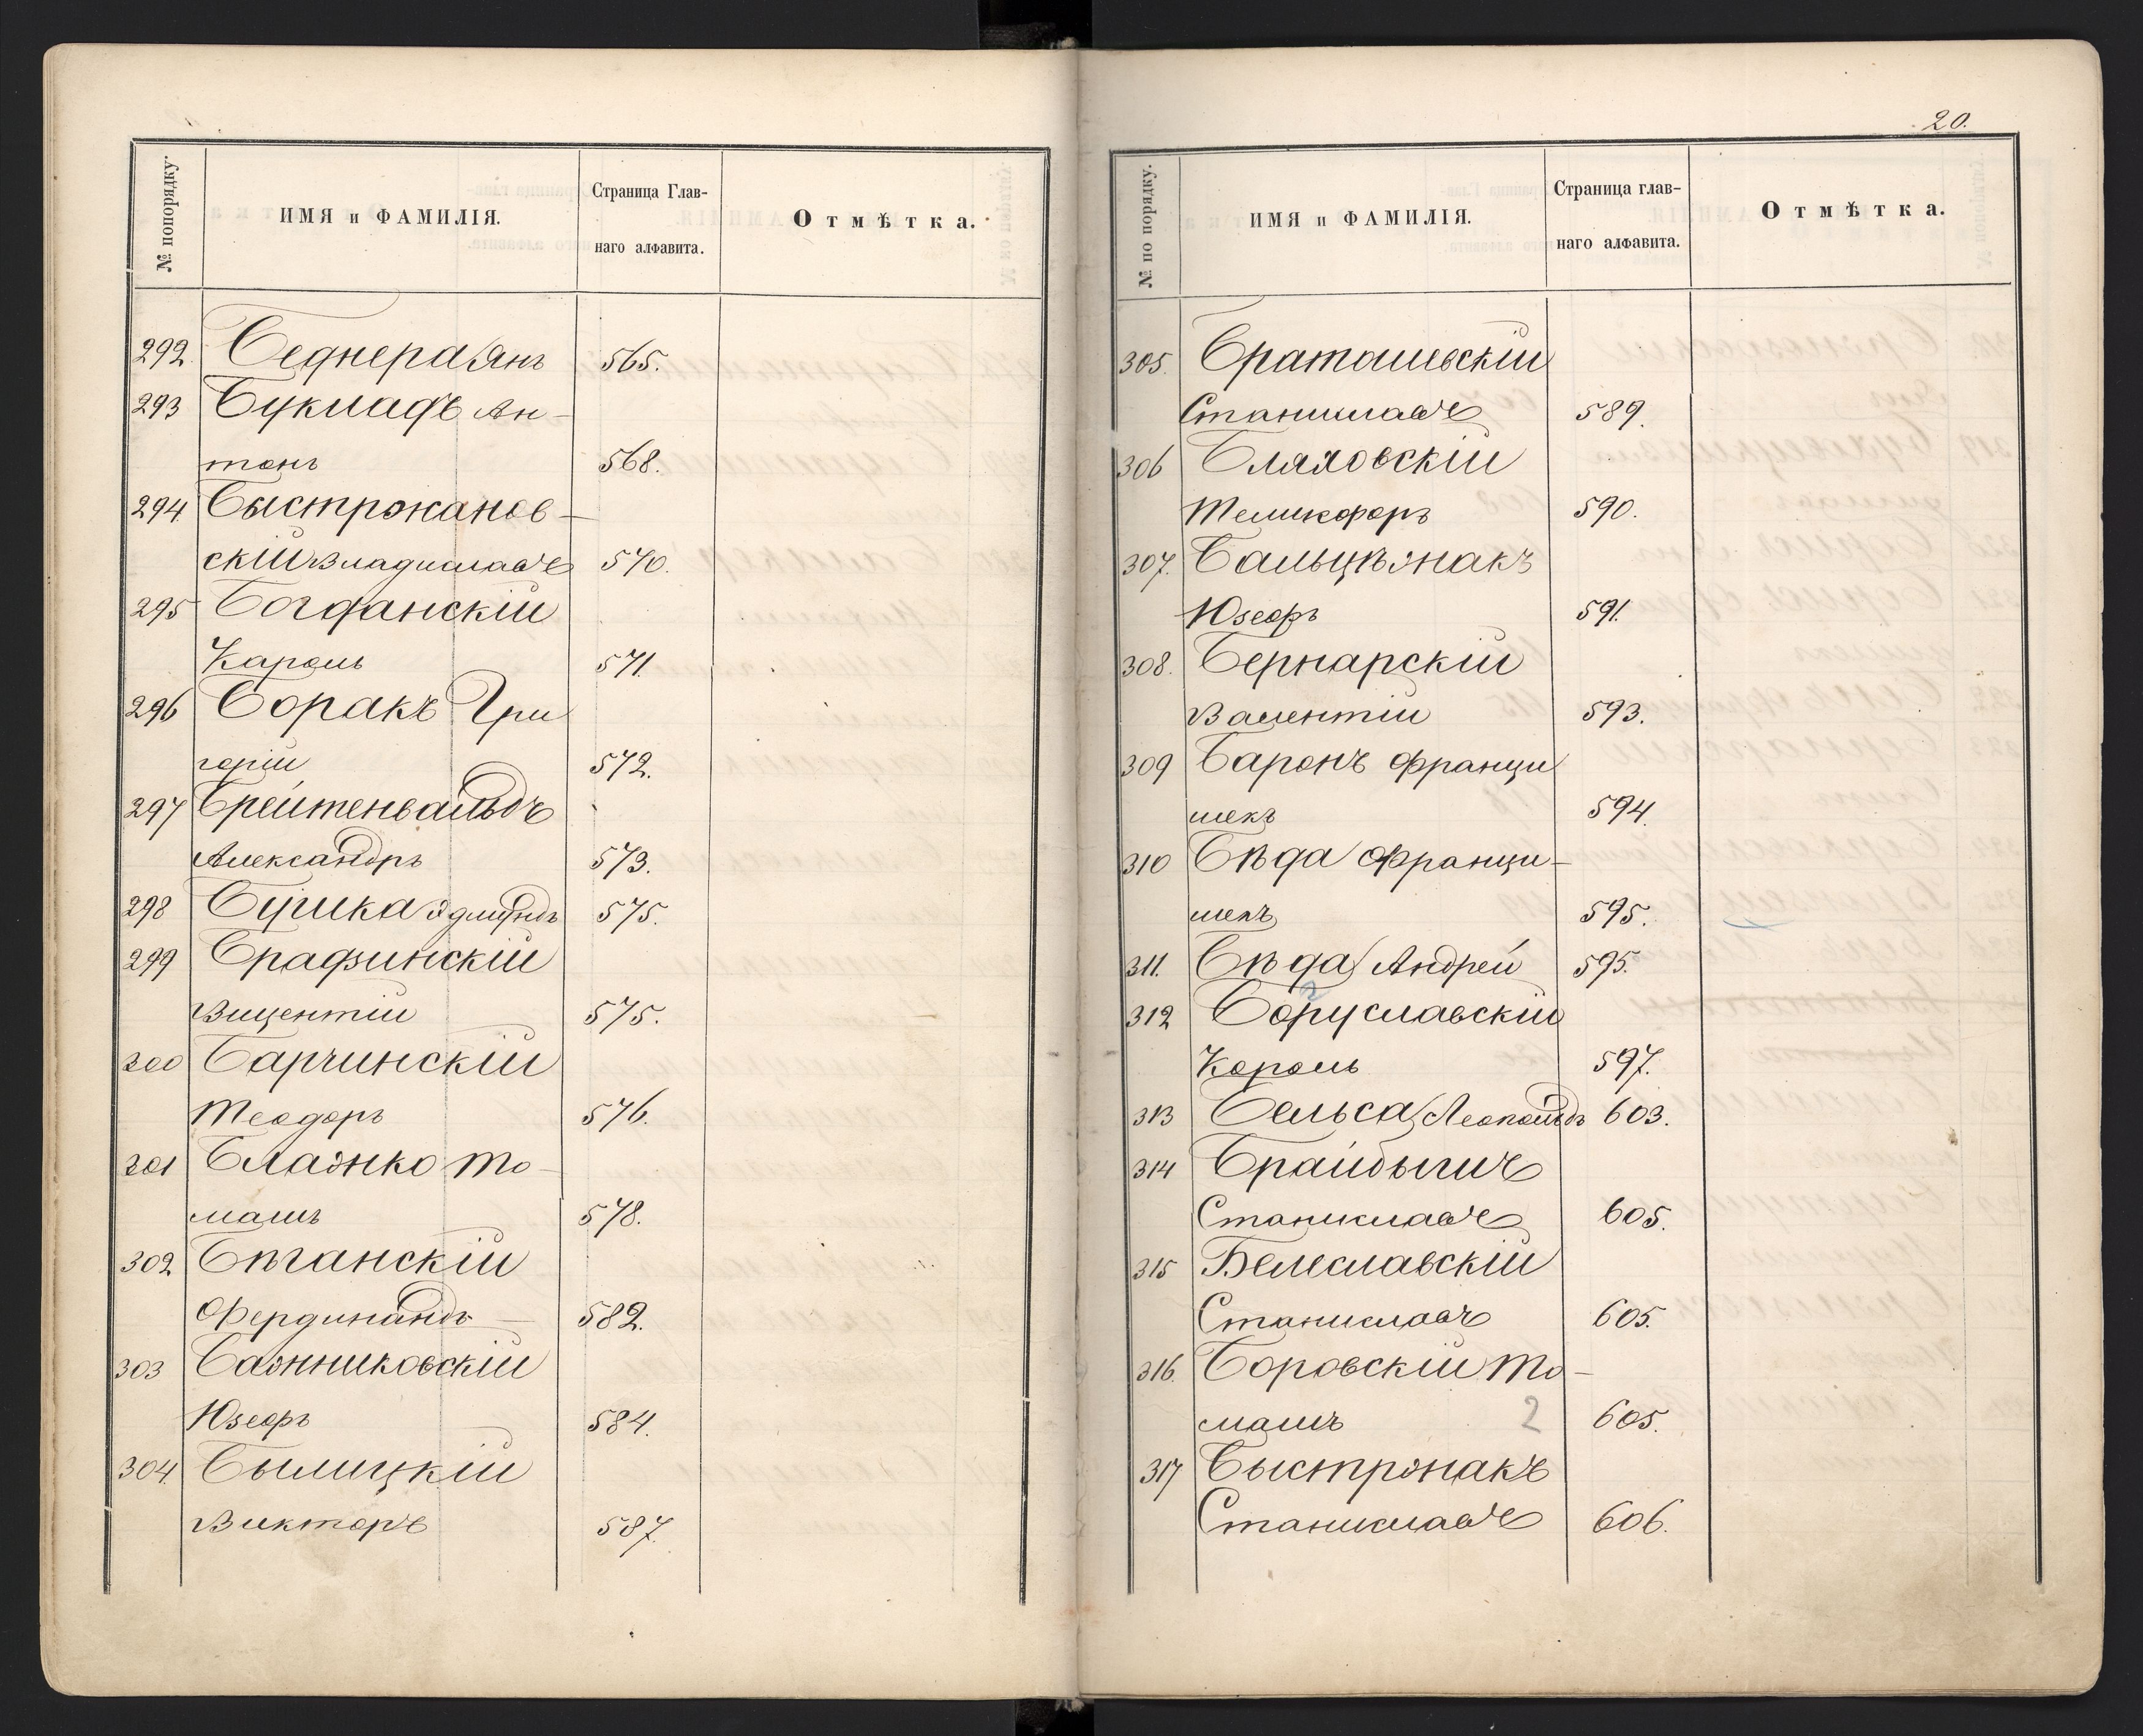 № попорядку.
ИМЯ и ФАМИЛІЯ.
Страница Глав-
наго алфавита.
Отмѣтка.
292. Беднера Янъ 565.
293 Буккладъ Ан-
тонъ 568.
294. Быстроканов-
скій Владиславъ 570.
295 Богданскій
Кароль 571.
296 Боракъ Гри
горій 572.
297 Брейтенвальдъ
Александръ 573.
298 Бушка Эдмундъ 575.
299 Брадзинскій
Вицентій 575.
300 Барчинскій
Теодоръ 576.
301 Блажко То-
машъ 578.
302 Бѣганскій
Фердинандъ 582.
303 Бажниковскій
Юзефъ 584.
304. Былицкій
Викторъ 587.
20.
№ по порядку.
ИМЯ и ФАМИЛІЯ.
Страница глав-
наго алфавита.
Отмѣтка.
305. Браташевскій
Станиславъ 589.
306 Бляховскій
Телисфоръ 590.
307. Бальцѣжакъ
Юзефъ 591.
308. Бернарскій
Валентій 593.
309 Баронъ Франци
шекъ 594.
310 Бѣда Франци-
шекъ 595.
311. Бѣда Андрей 595.
312 Боруславскій
Кароль 597.
313 Бельса Леопольдъ 603.
314 Брайдыгичъ
Станиславъ 605.
315 Белеславскій
Станиславъ 605.
316. Боровскій То-
машъ 2 605.
317 Быстржакъ
Станиславъ 606.